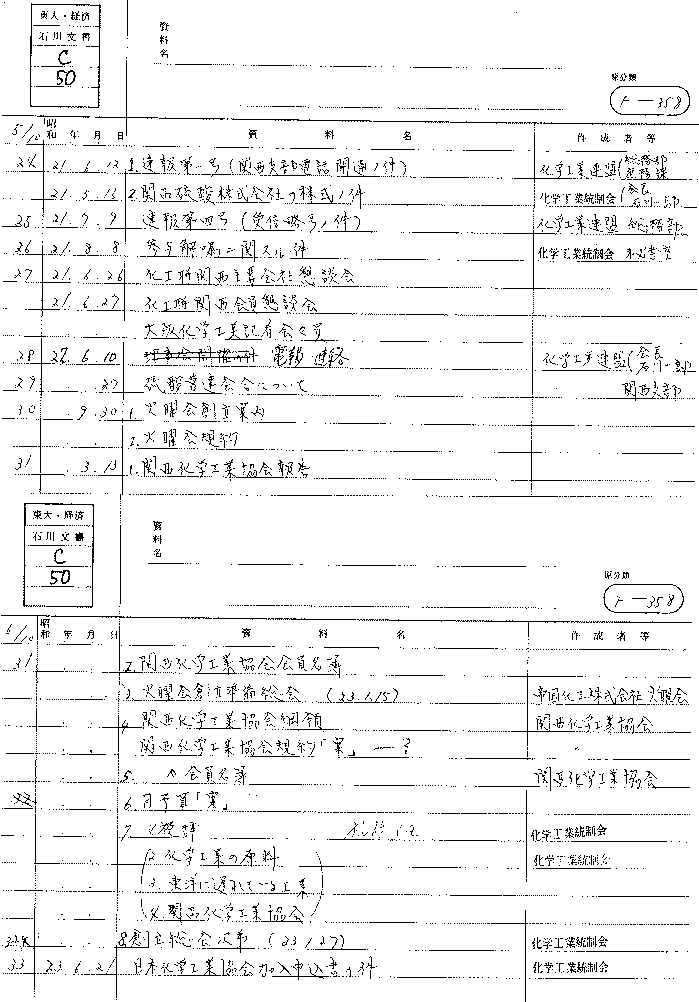 東大・経済
石川文書
C
50
資料名
原分類
F-358
5/10 昭和 年 月 日 資料名 作成者等
24 21.6.12 1.速報第一号(関西支部電話開通ノ件) 化学工業連盟(総務部
21.5.13 2.関西硫酸株式会社ノ株式ノ件 化学工業統制会(会長
25 21.7.9 速報第四号(受信略号ノ件) 化学工業連盟 総務部
26 21.8.8 参与解嘱ニ関スル件 化学工業統制会
27 21.6.26 化工聯関西主要会社懇談会
21.6.27 化工聯関西会員懇談会
大阪化学工業記者会々員
28 22.6.10 電報 連絡 化学工業連盟(会長
29 . .27 硫酸普連会合について 関西支部
30 .9.30 1.火曜会創立案内
. . 2.火曜会規約
31 .3.13 1.関西化学工業協会報告
東大・経済
石川文書
C
50
資料名
原分類
F-358
6/10 昭和 年 月 日 資料名 作成者等
31 . . 2.関西化学工業協会会員名簿
. . 3.火曜会創立準備総会 (23.1.15) 帝国化工株式会社火曜会
. . 4.関西化学工業協会綱領 関西化学工業協会
. . 関西化学工業協会規約「案」 ー? 〃
. . 5. 〃 会員名簿 関西化学工業協会
. . 6.月予算「案」
. . 7. 化学工業統制会
(2.化学工業の原料 化学工業統制会
3.東洋に遅れている工業
4.関西化学工業協会)
. . 8.創立総会次第 (23.1.27) 化学工業統制会
33 23.6.21 日本化学工業協会加入申込書ノ件 化学工業統制会